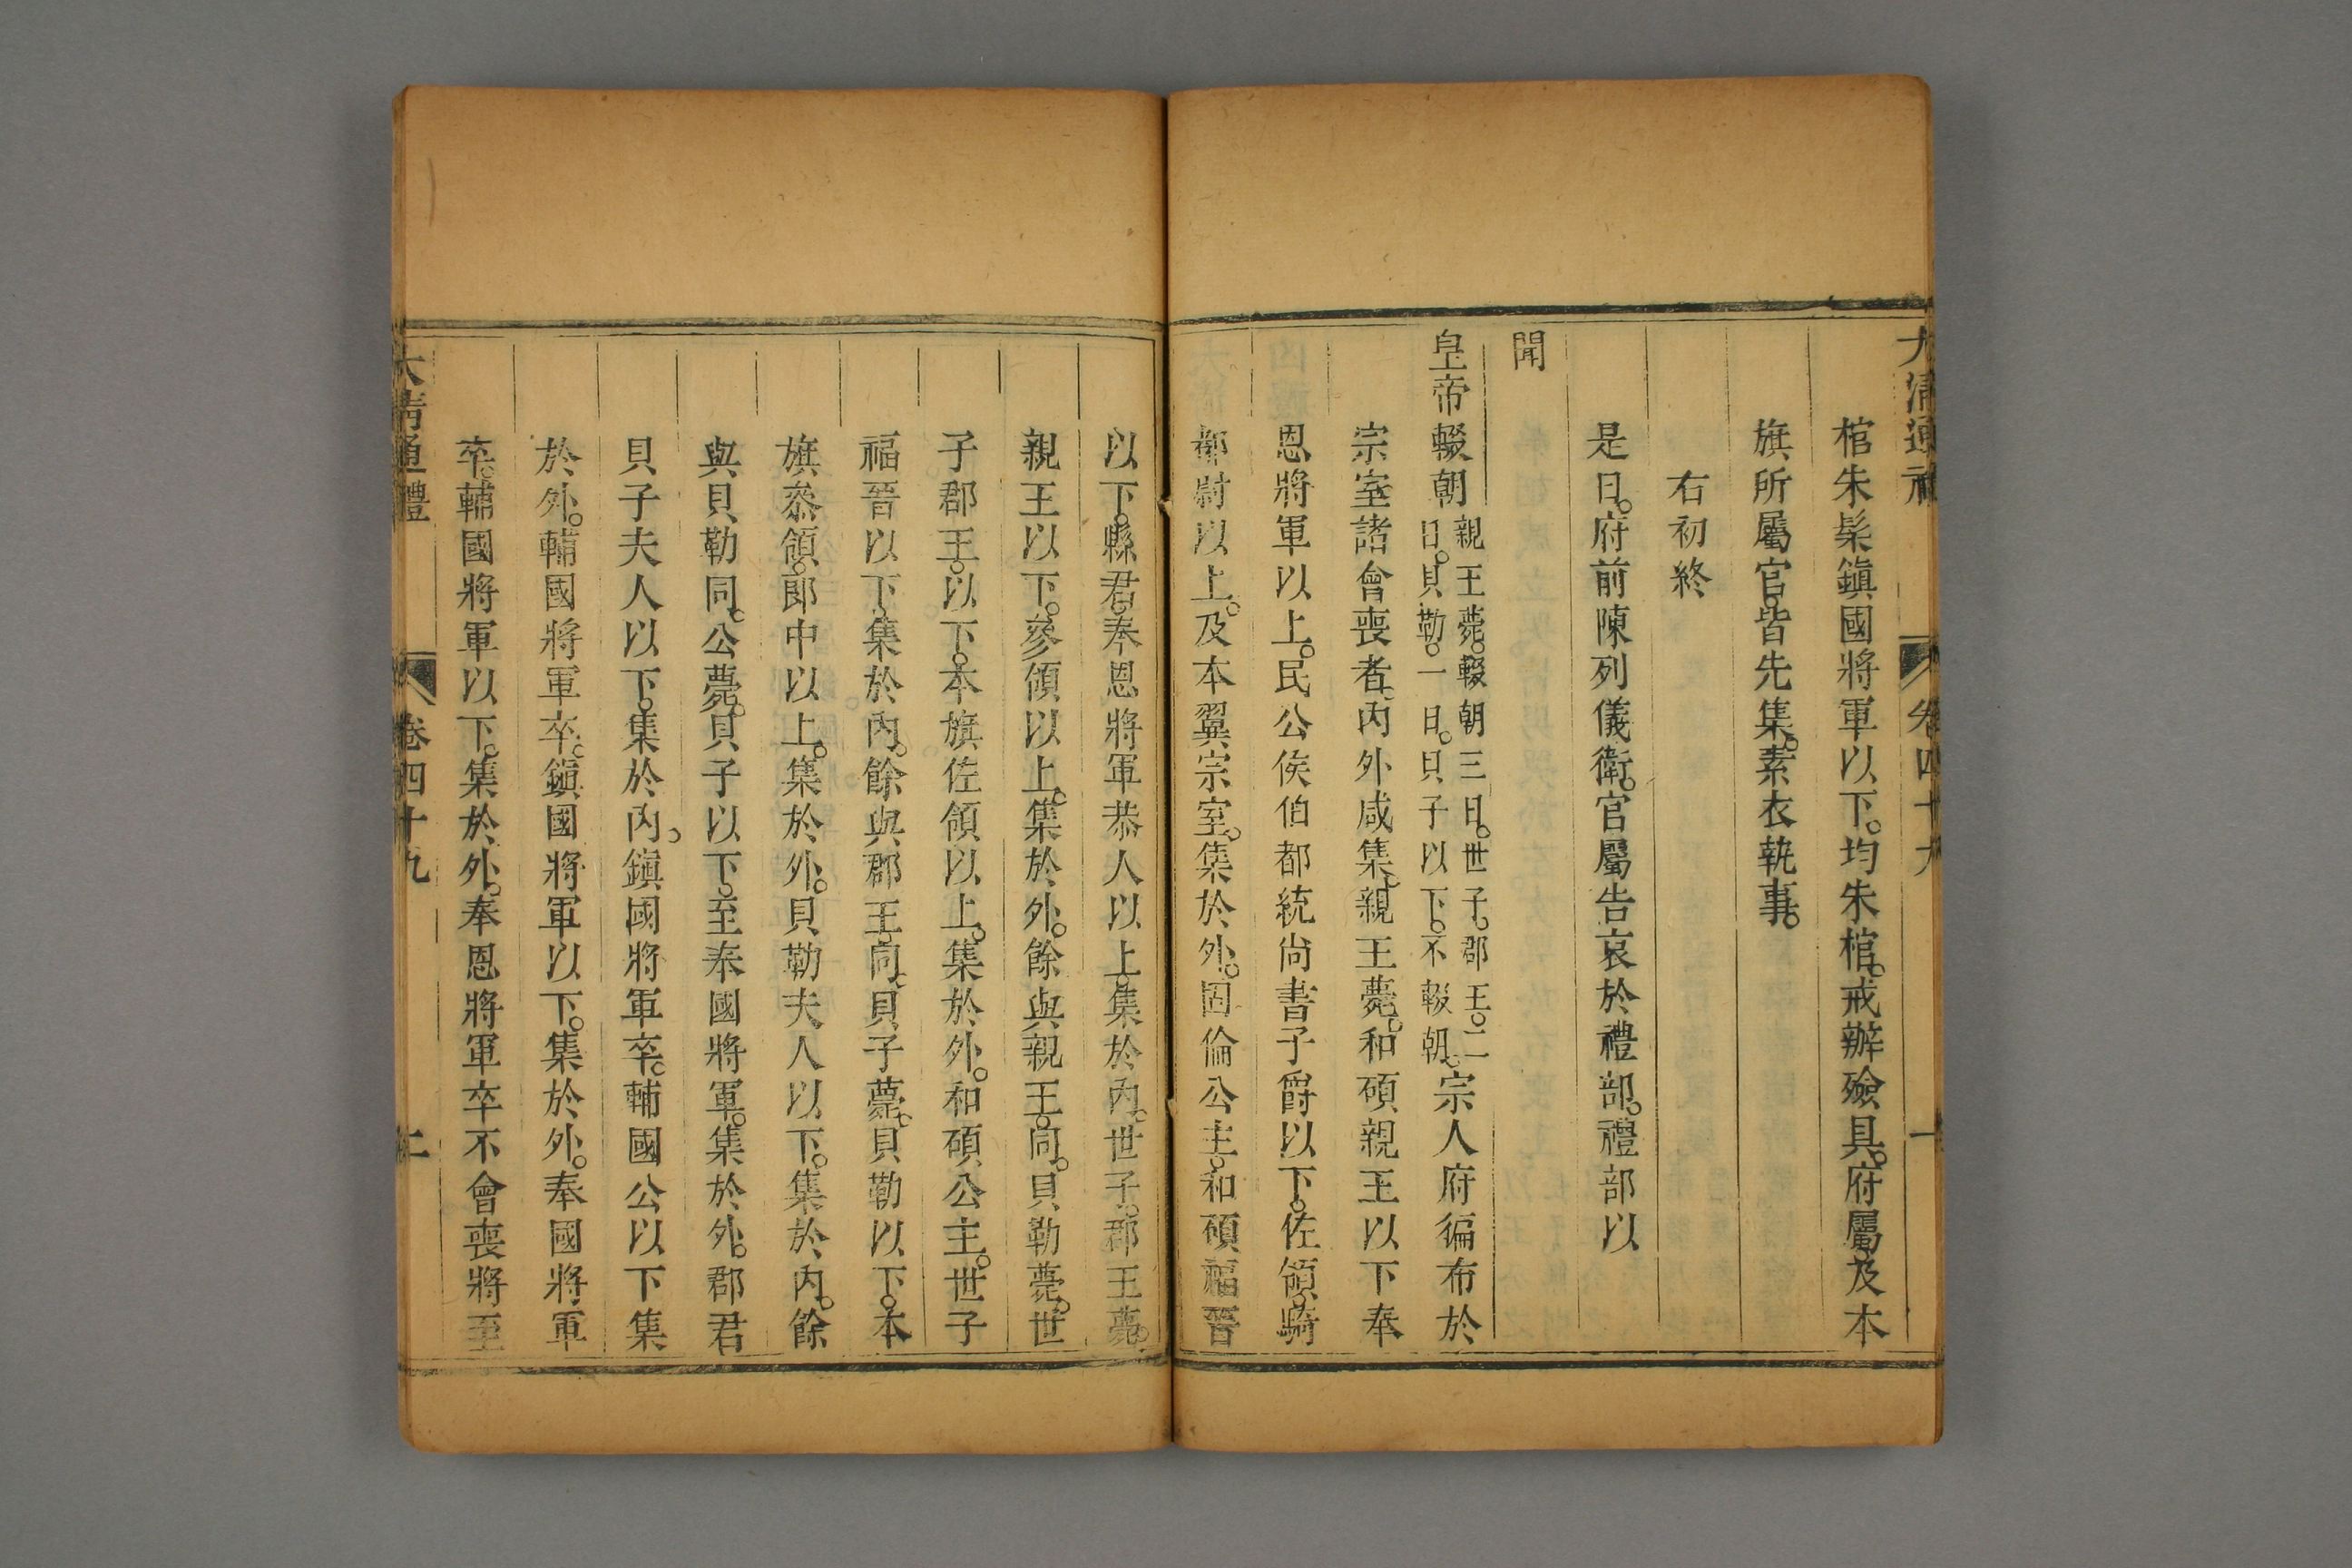 大清通禮 卷四十九 一
棺朱髹鎮國將軍以下。均朱棺。戒辦殮具。府屬及本
旗所屬官。皆先集。素衣執事。
右初終
是日。府前陳列儀衛。官屬告哀於禮部。禮部以
聞
皇帝輟朝親王薨。輟朝三日。世子。郡王。二日。貝勒。一日。貝子以下。不輟朝。宗人府徧布於
宗室諸會喪者。內外咸集。親王薨。和碩親王以下奉
恩將軍以上。民公侯伯都統尚書子爵以下。佐領。騎
都尉以上。及本翼宗室。集於外。固倫公主。和碩福晉
以下。縣君。奉恩將軍恭人以上。集於內。世子。郡王薨。
親王以下。叅領以上。集於外。餘與親王。同。貝勒薨。世
子郡王。以下。本旗佐領以上。集於外。和碩公主。世子
福晉以下。集於內。餘與郡王。同。貝子薨。貝勒以下。本
旗叅領。郎中以上。集於外。貝勒夫人以下。集於內。餘
與貝勒同。公薨。貝子以下。至奉國將軍。集於外。郡君
貝子夫人以下。集於內。鎮國將軍卒。輔國公以下集
於外。輔國將軍卒。鎮國將軍以下。集於外。奉國將軍
卒。輔國將軍以下。集於外。奉恩將軍卒不會喪將至
大清通禮 卷四十九 二